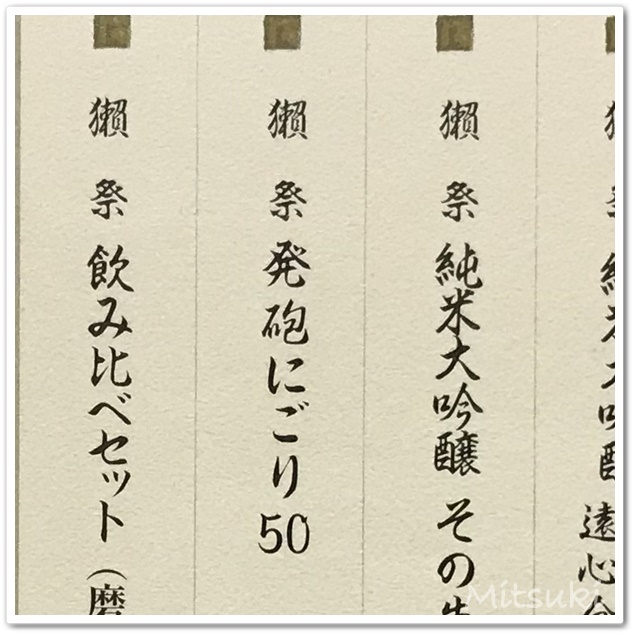 獺祭 純米大吟醸 遠心
獺祭 純米大吟醸 その
獺祭 発砲にごり50
獺祭 飲み比べセット（磨
Mitsuki